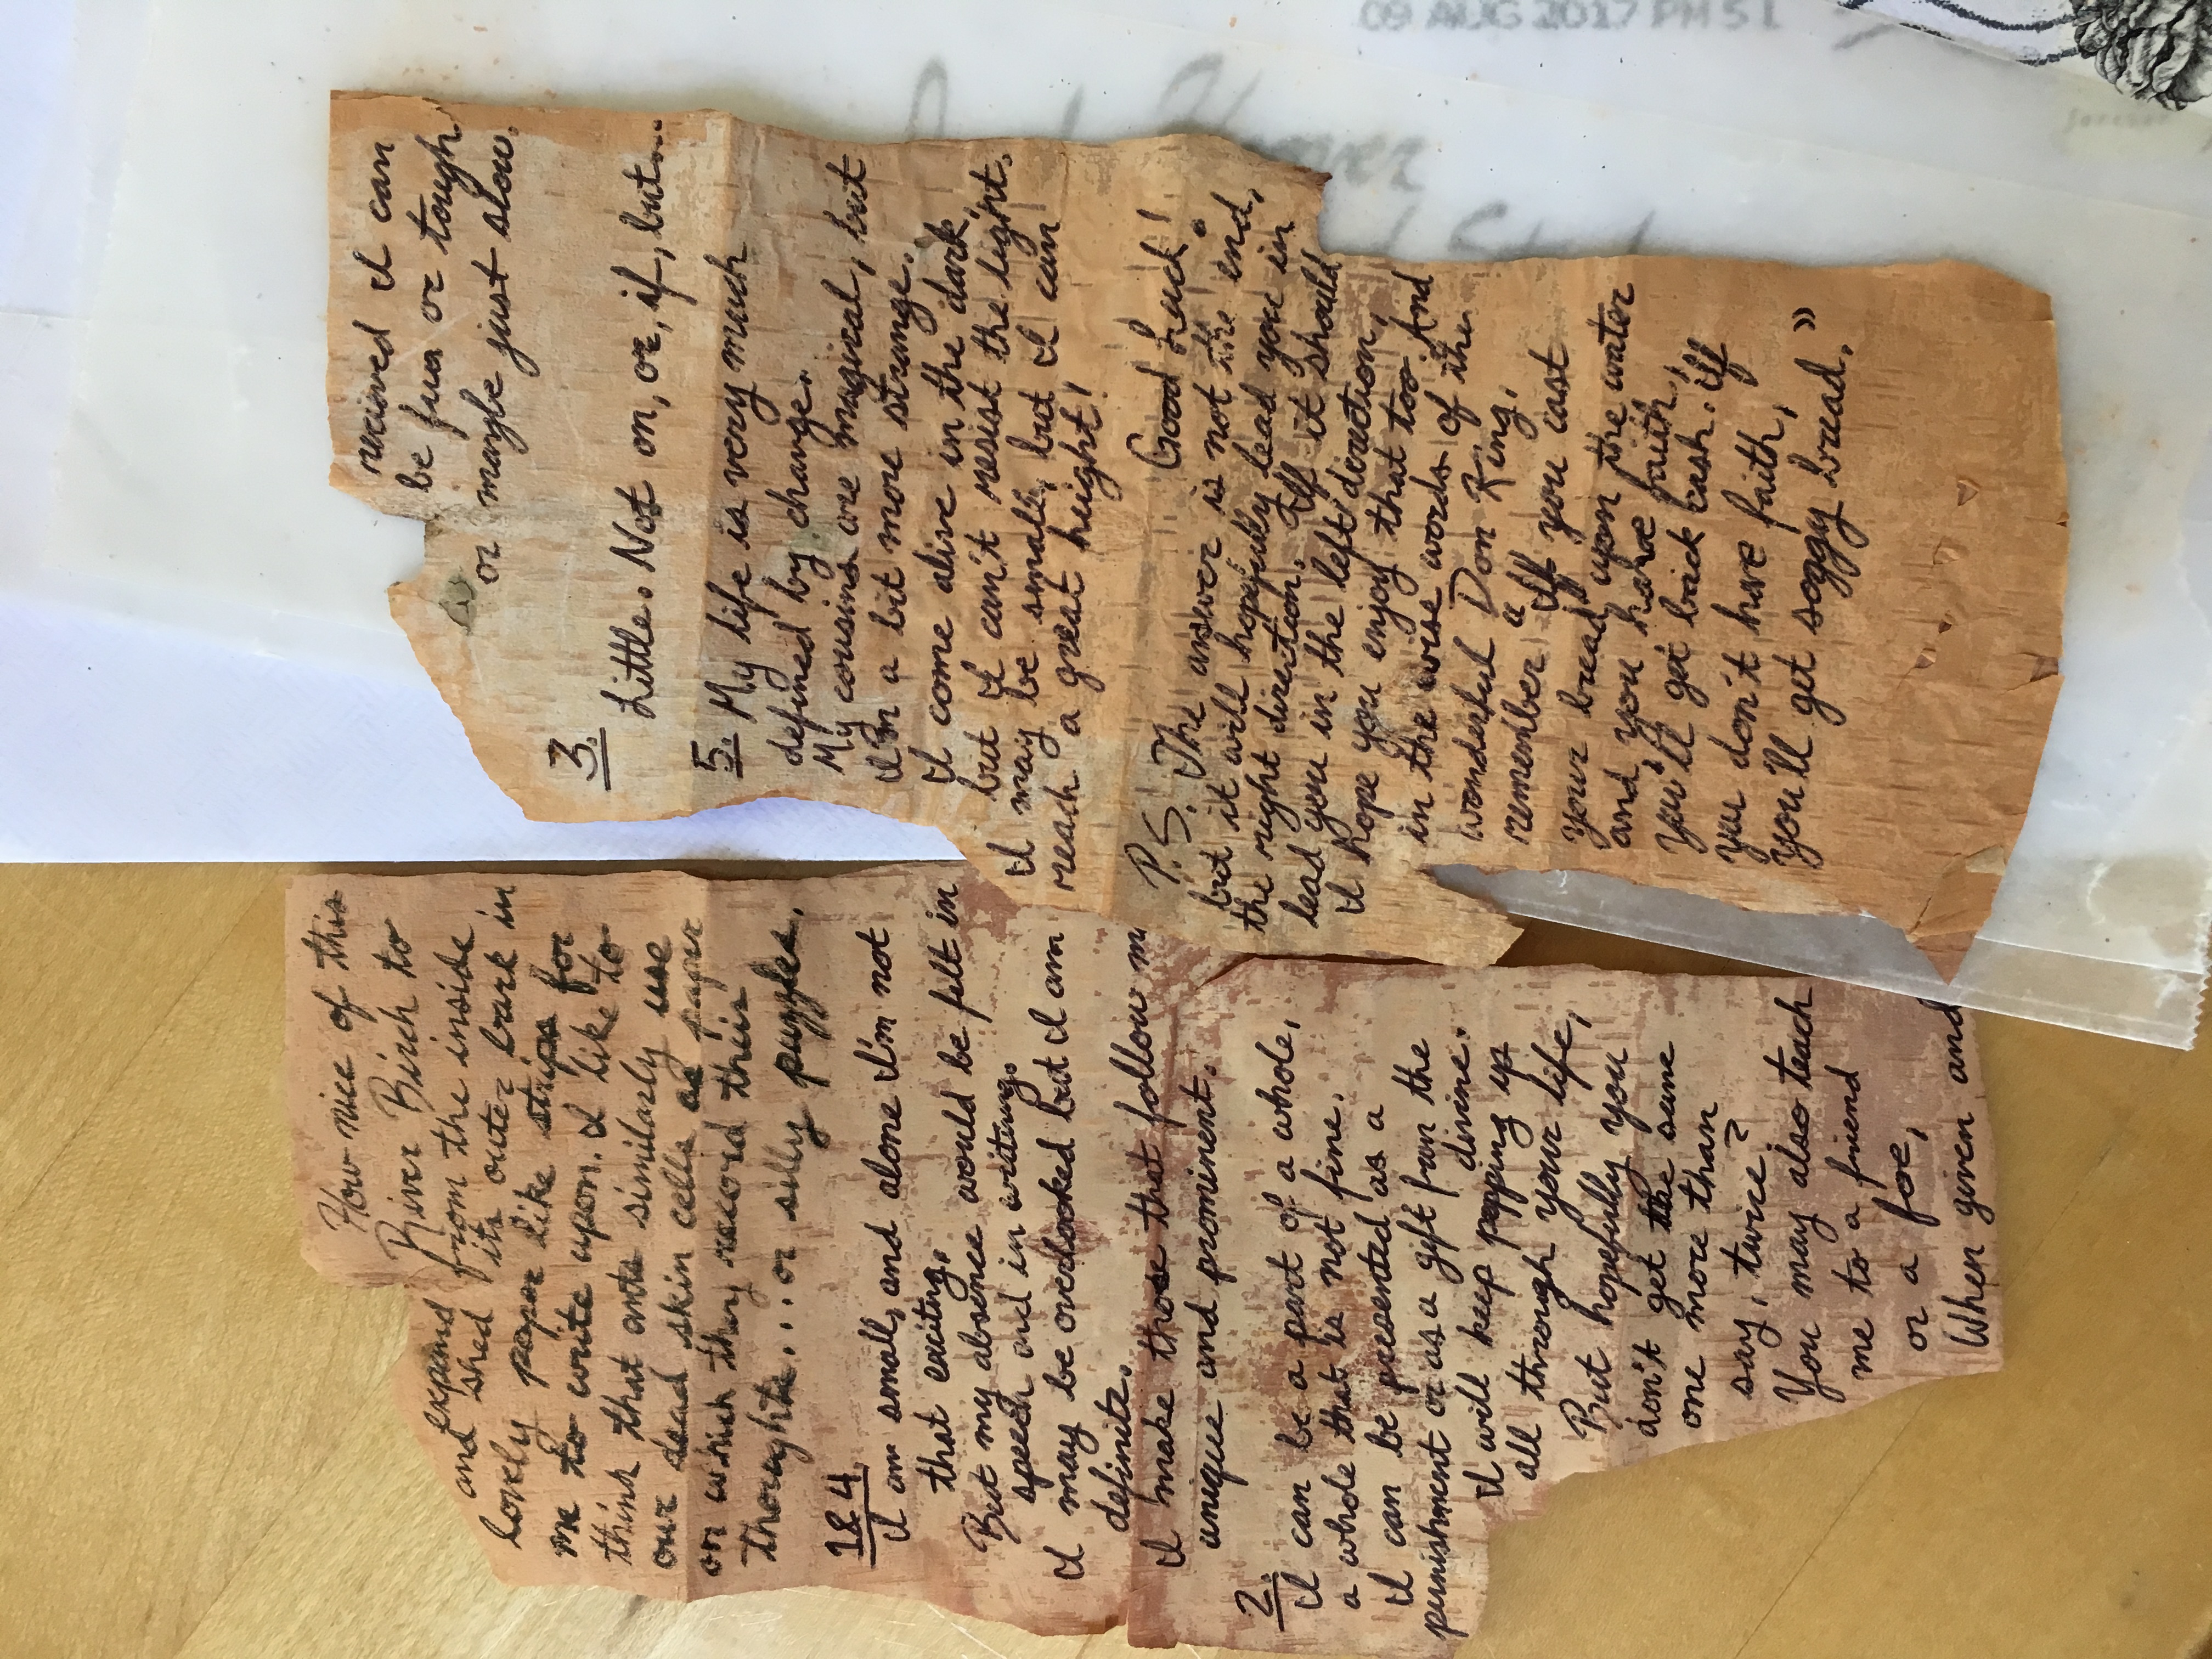 How nice of this
River Birch to
expand from the inside
and shed its outer bark in
lovely paper like strips for
me to write upon. I like to
think that ants similarly use
our dead skin cells as paper
on which they record their
thoughts... or silly puzzles.
1&4.
I am small, and alone I'm not
that exciting.
But my absence would be felt in
speech and in writing.
I may be overlooked but I am
definite.
I make those that follow me
unique and prominent.
2.
I can be a part of a whole,
a whole that is not fine.
I can be presented as a
punishment or as a gift from the
divine.
I will keep popping up
all through your life,
But hopefully you
don't get the same
one more than
say, twice?
You may also teach
me to a friend
or a foe,
When given and
recieved I can
be fun or tough
or maybe just slow.
3.
Little. Not on, or, if, but...
5. My life is very much
defined by change.
My cousins are magical, but
I'm a bit more strange.
I come alive in the dark,
but I can't resist the light.
I may be small, but I can
reach a great height!
Good Luck!
P.S. The answer is not the end,
but it will hopefully lead you in
the right direction. If it should
lead you in the left direction,
I hope you enjoy that too. And
in the wise words of the
wonderful Don King,
remember "If you cast
your bread upon the water
and you have faith,
you'll get back cash. If
you don't have faith,
you'll get soggy bread."